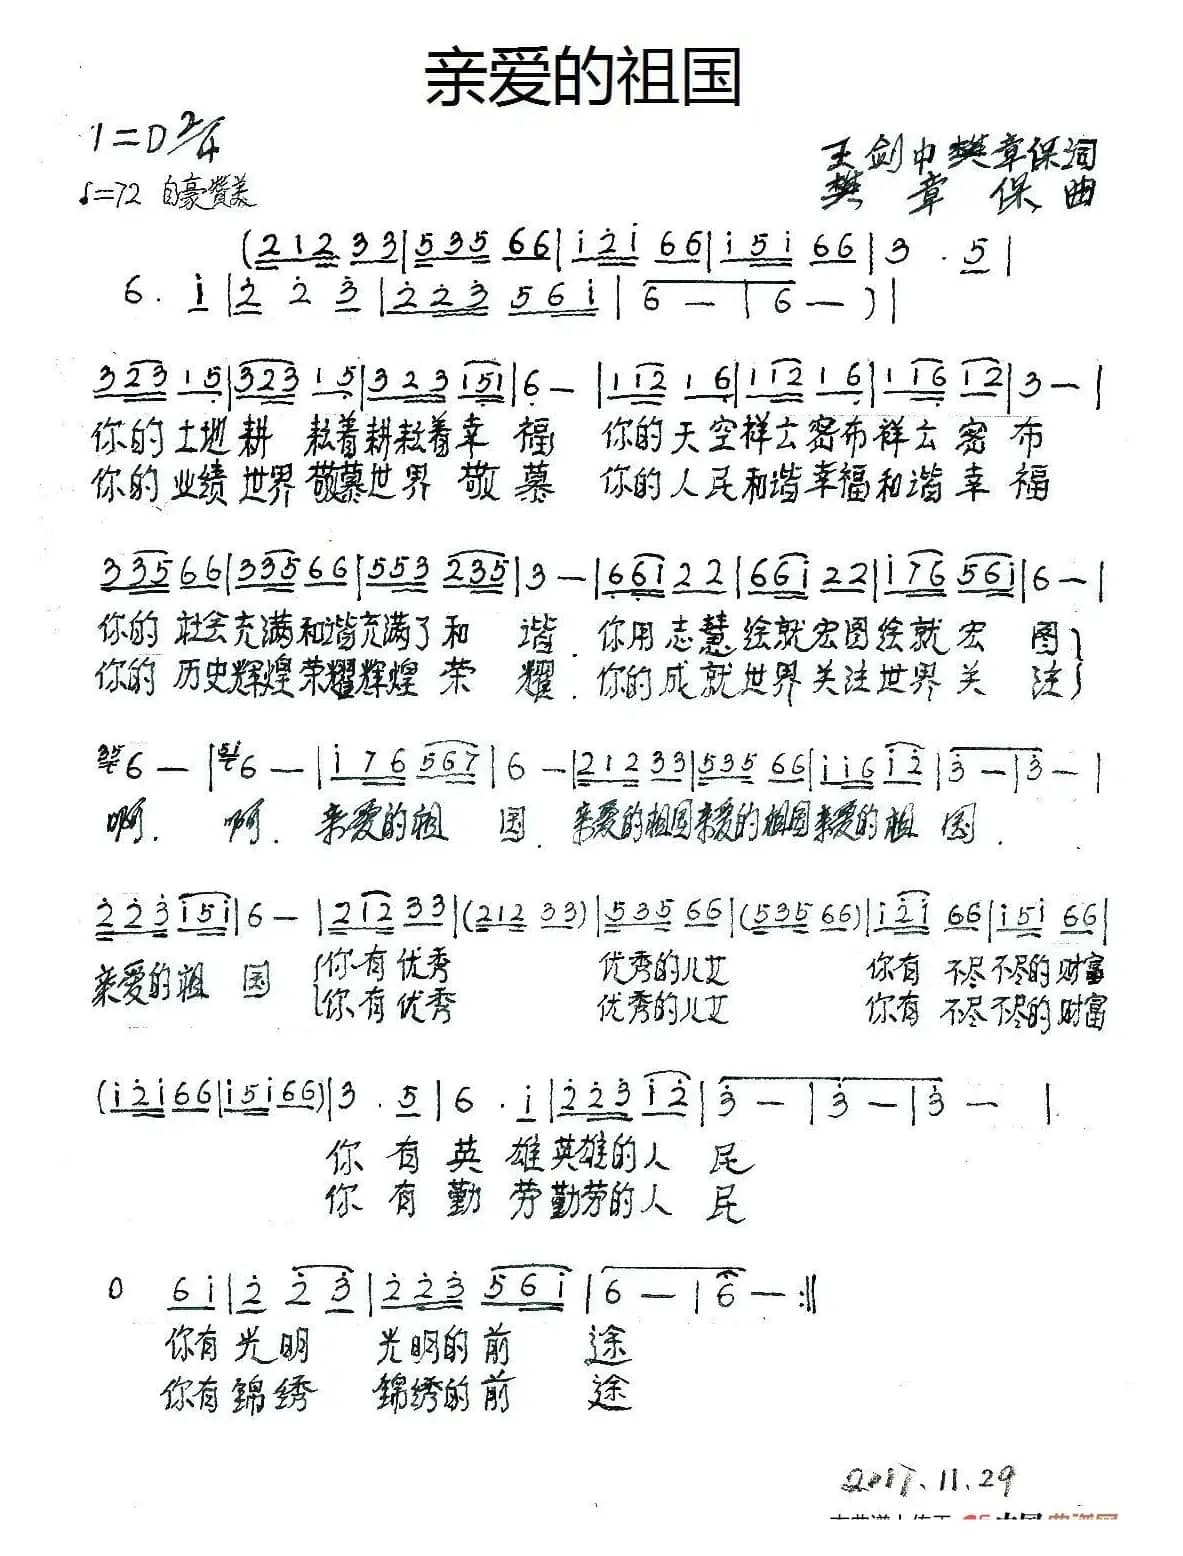 亲爱的祖国
1=D 2/4
王剑中 樊章保词
♩=72 自豪赞美
樊章保 曲
(2 1 2 3 3 | 5 3 5 6 6 | i 2̇ i 6 6 | i 5 i 6 6 | 3 . 5 |
6 . i | 2̇ 2̇ 3̇ | 2̇ 2̇ 3̇ 5 6 i | 6 — | 6 — ) |
3 2 3 1 5̣ | 3 2 3 1 5̣ | 3 2 3 1 5̣ 1 | 6̣ — | 1 1 2 1 6̣ | 1 1 2 1 6̣ | 1 1 6̣ 1 2 | 3 — |
你的土地耕 耘着耕耘着幸 福 你的天空祥云密布祥云密 布
你的业绩世界敬慕世界 敬慕 你的人民和谐幸福和谐幸 福
3 3 5 6 6 | 3 3 5 6 6 | 5 5 3 2 3 5 | 3 — | 6 6 i 2 2 | 6 6 i 2 2 | i 7 6 5 6 i | 6 — |
你的 社会充满和谐充满了和 谐. 你用志慧绘就宏图绘就宏 图
你的 历史辉煌荣耀辉煌 荣 耀. 你的成就世界关注世界关 注
35 6 — | 5i 6 — | i 7 6 5 6 7 | 6 — | 2 1 2 3 3 | 5 3 5 6 6 | i i 6 i 2̇ | 3̇ — | 3̇ — |
啊. 啊. 亲爱的祖 国. 亲爱的祖国亲爱的祖国亲爱的祖 国.
2̇ 2̇ 3̇ i 5 i | 6 — | 2 1 2 3 3 | (2 1 2 3 3) | 5 3 5 6 6 | (5 3 5 6 6) | i 2̇ i 6 6 | i 5 i 6 6 |
亲爱的祖 国 你有优秀 优秀的儿女 你有 不尽不尽的财富
你有优秀 优秀的儿女 你有 不尽不尽的财富
(i 2̇ i 6 6 | i 5 i 6 6) | 3 . 5 | 6 . i | 2̇ 2̇ 3̇ i 2̇ | 3̇ — | 3̇ — | 3̇ — |
你有英 雄英雄的人 民
你有勤 劳勤劳的人 民
0 6 i | 2̇ 2̇ 3̇ | 2̇ 2̇ 3̇ 5 6 i | 6 — | 6 — :||
你有光明 光明的前 途
你有锦绣 锦绣的前 途
2017.11.29